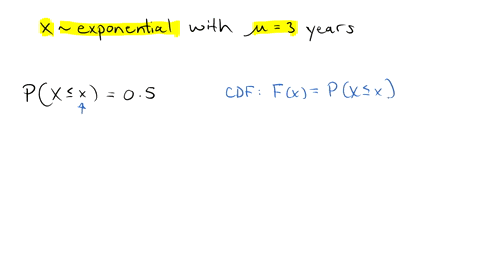 X ~ exponential with μ = 3 years
P(X ≤ x) = 0.5
CDF: F(x) = P(X ≤ x)